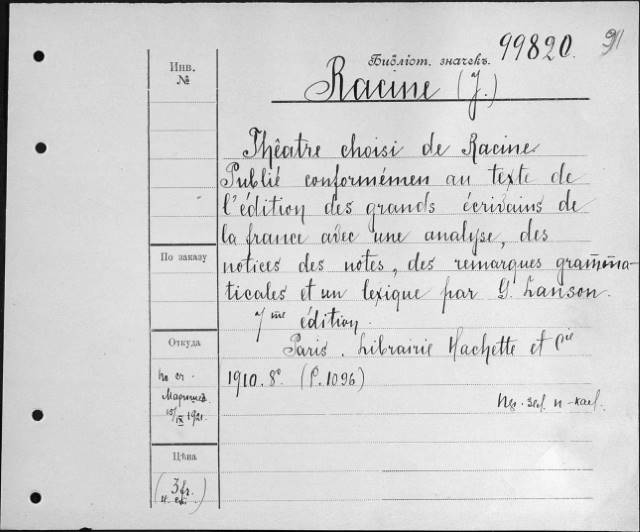 Библіот. значекъ. 99820. 91
Инв. №
Racine (J.)
Théatre choisi de Racine
Publié conformémen au texte de
l'édition des grands écrivains de
la france avec une analyse, des
notices des notes, des remarques gramma-
ticales et un lexique par G. Lanson.
7me édition.
Paris. Librairie Hachette et Cie
1910. 8° (P. 1096)
По заказу
Откуда
15/IX 1921.
Цѣна
(3 fr.